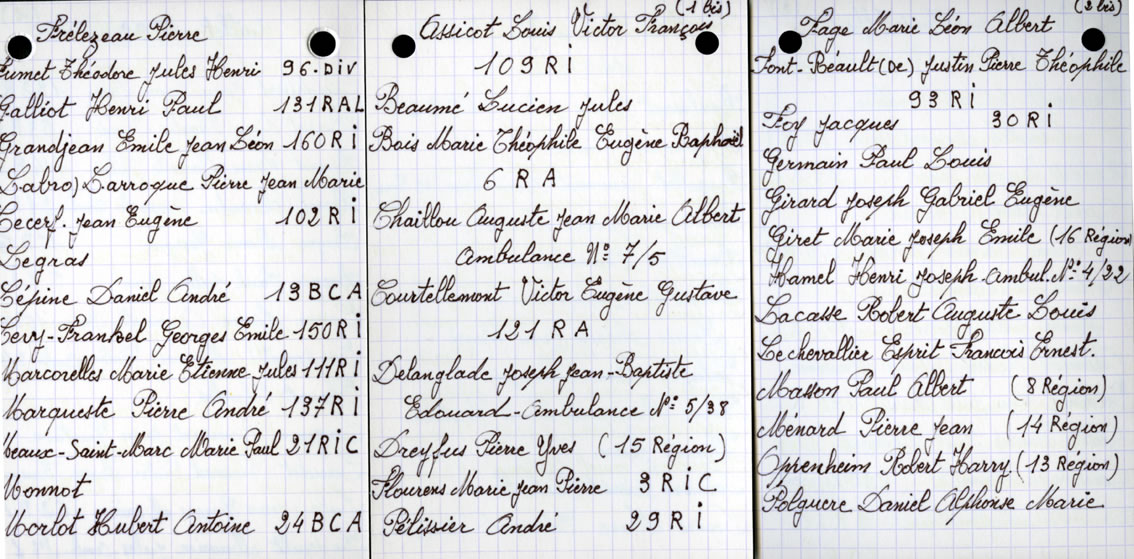 Frélezeau Pierre
Fumet Théodore Jules Henri 96.DiV
Galliot Henri Paul 131 RAL
Grandjean Emile Jean Léon 160 Ri
Labro) Larroque Pierre Jean Marie
Lecerf. Jean Eugène 102 Ri
Legras
Lépine Daniel André 13 BCA
Levy-Frankel Georges Emile 150 Ri
Marcorelles Marie Etienne Jules 111 Ri
Marqueste Pierre André 137 Ri
Meaux-Saint-Marc Marie Paul 21 RiC
Monnot
Morlot Hubert Antoine 24 BCA
(1 bis)
Assicot Louis Victor François
109 Ri
Beaumé Lucien Jules
Bois Marie Théophile Eugène Raphaël
6 RA
Chaillou Auguste Jean Marie Albert
Ambulance N° 7/5
Courtellemont Victor Eugène Gustave
121 RA
Delanglade Joseph Jean-Baptiste
Edouard-Ambulance N° 5/38
Dreyfus Pierre Yves (15 Région)
Flourens Marie Jean Pierre 3 RiC
Pélissier André 29 Ri
(2 bis)
Fage Marie Léon Albert
Font-Réault (De) Justin Pierre Théophile
93 Ri
Foy Jacques 30 Ri
Germain Paul Louis
Girard Joseph Gabriel Eugène
Giret Marie Joseph Emile (16 Région)
Hamel Henri Joseph-Ambul. N° 4/22
Lacasse Robert Auguste Louis
Lechevallier Esprit Francois Ernest.
Masson Paul Albert (8 Région)
Ménard Pierre Jean (14 Région)
Oppenheim Robert Harry (13 Région)
Polguere Daniel Alphonse Marie